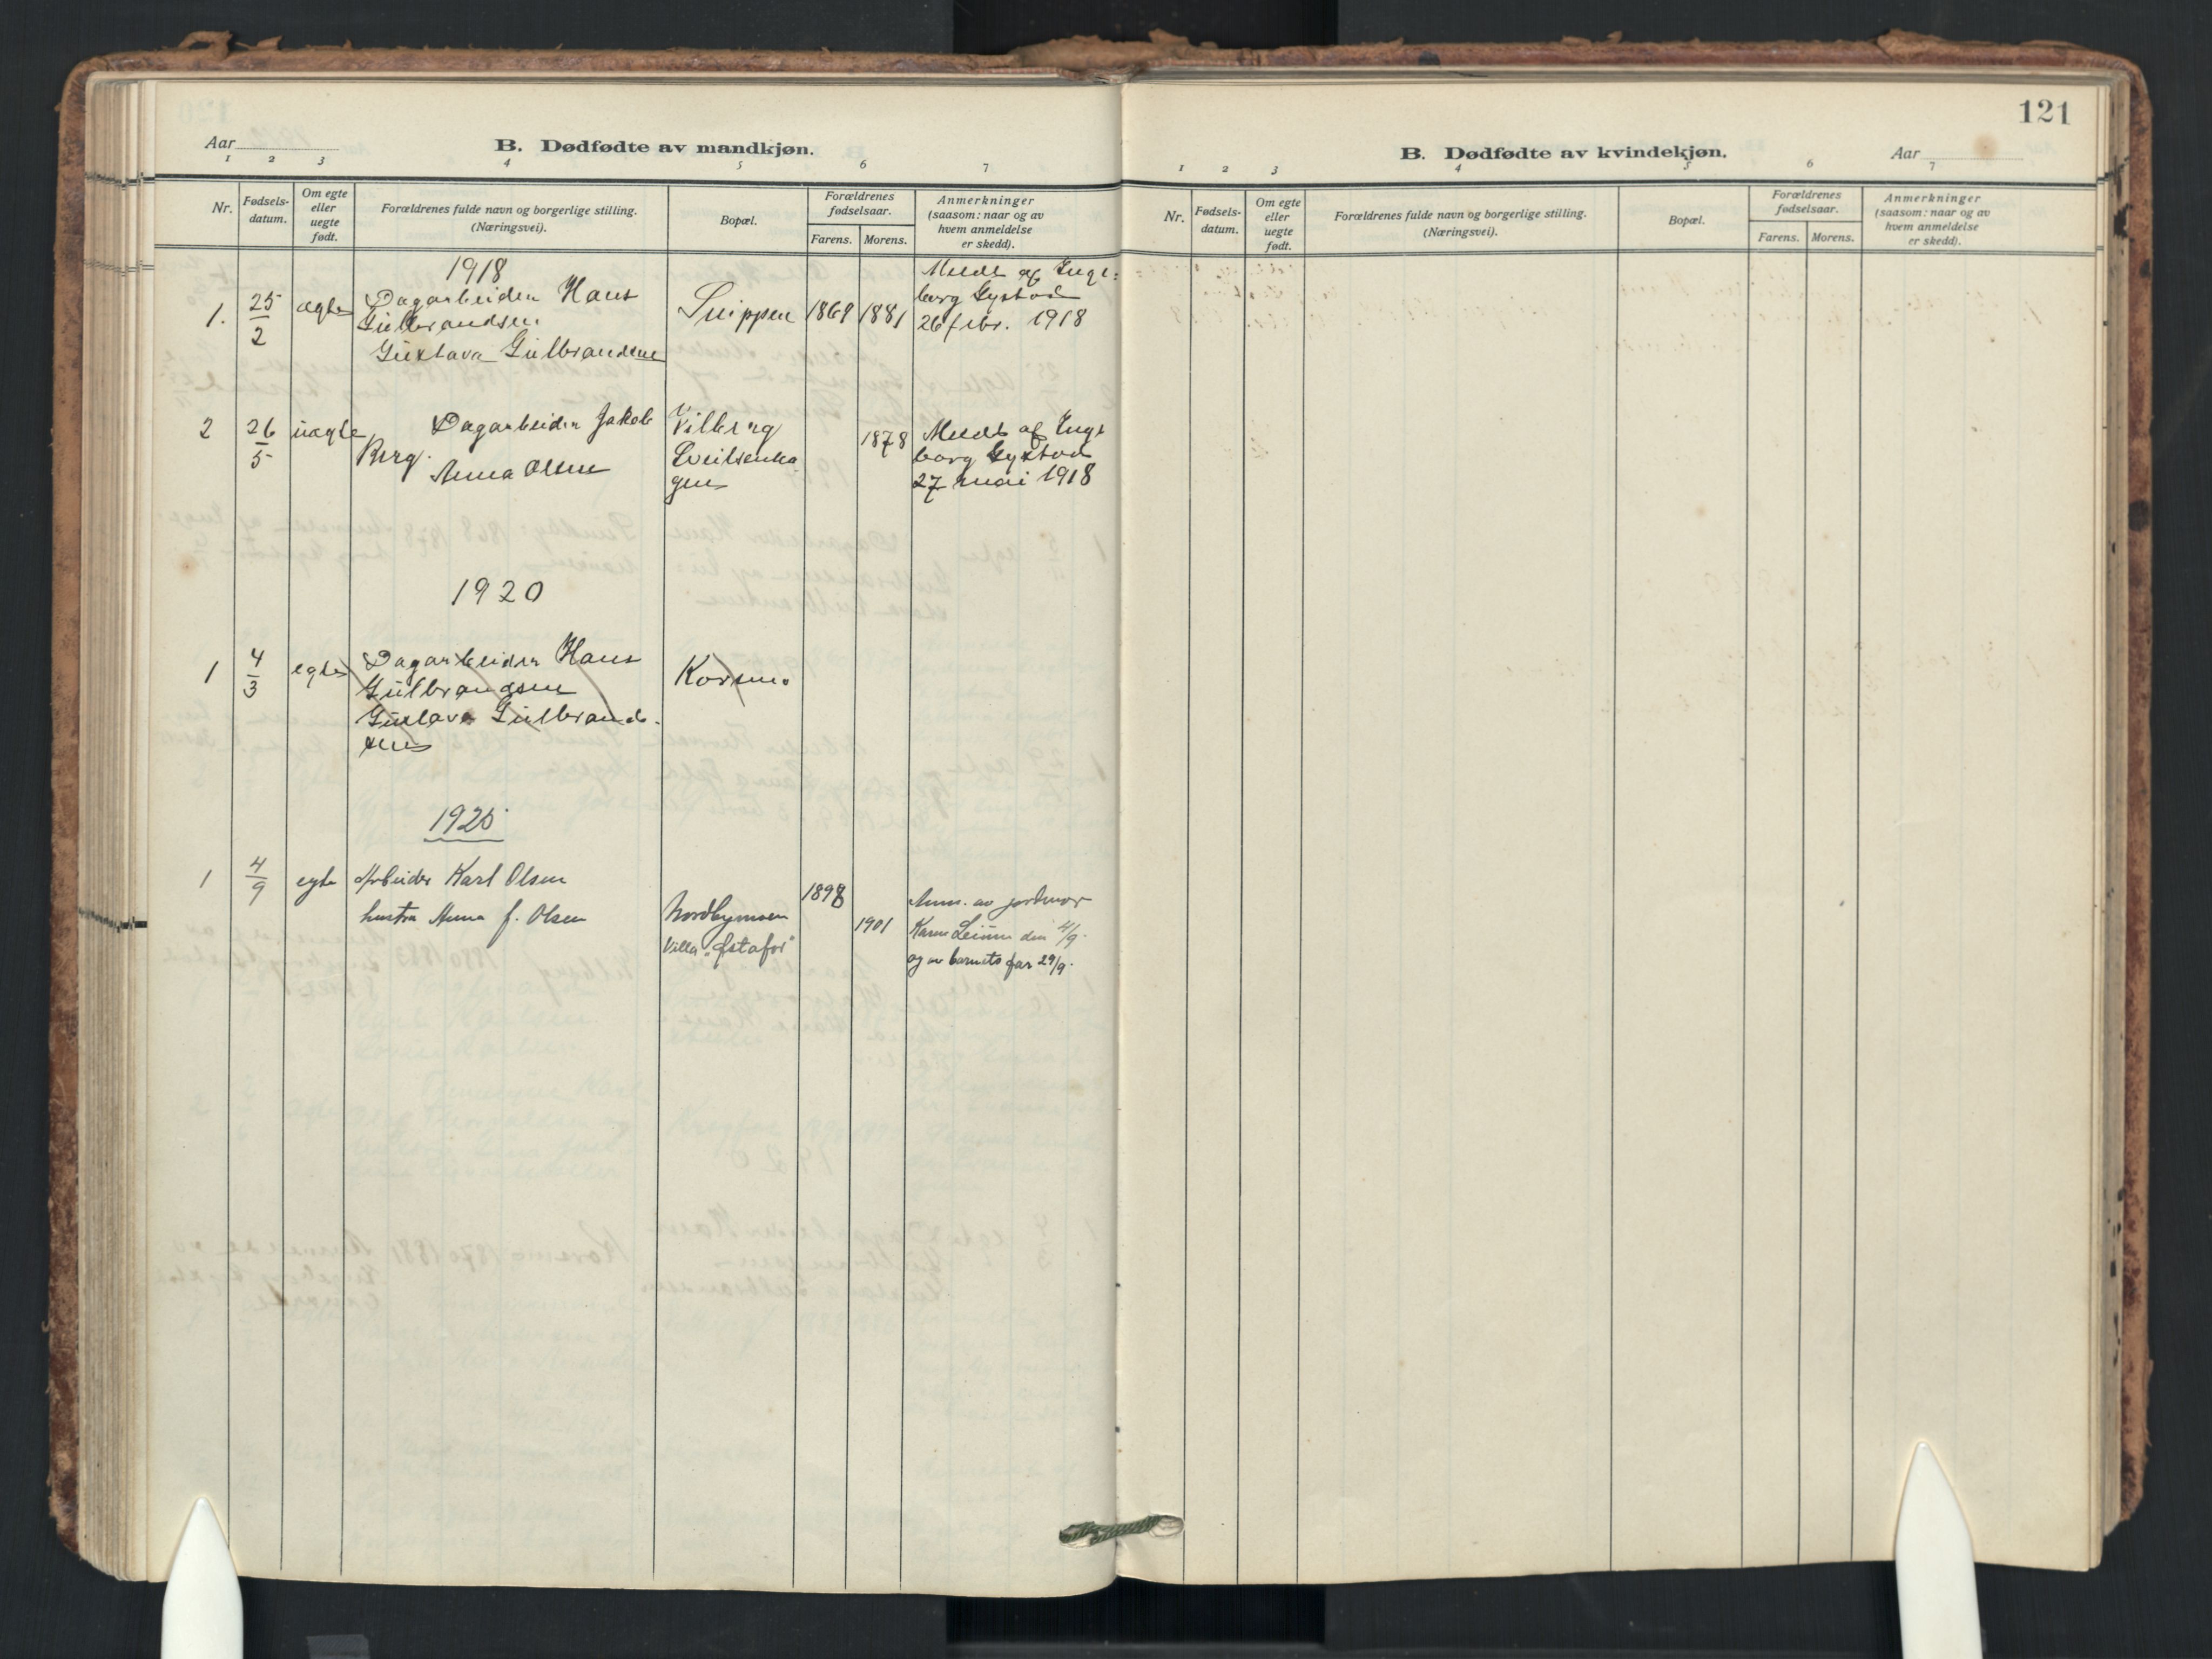 Aar
B. Dødfødte av mandkjøn.
1 2 3 4 5 6 7
Nr.
Fødsels-
datum.
Om egte
eller
uegte
født.
Forældrenes fulde navn og borgerlige stilling.
(Næringsvei).
Bopæl.
Forældrenes
fødselsaar.
Farens. Morens.
Anmerkninger
(saasom: naar og av
hvem anmeldelse
er skedd).
1918
1. 25/2 ægte
Dagarbeider Hans
Gulbrandsen
Gustava Gulbrandsen
Snippen
1869 1881
Meldt af Inge-
borg Gystad
26 febr. 1918
2 26/5 uægte
Dagarbeider Jakob
Berg.
Anna Olsen
Vilberg
gen
1878
Meldt af Inge
borg Gystad
27 mai 1918
1920
1 4/3 egte
Dagarbeider Hans
Gulbrandsen
Gustava Gulbrand-
sen
Korsmo
1925
1 4/9 egte
Arbeider Karl Olsen
hustru Anna f. Olsen
Nordbymoen
Villa "Østafor"
1898
1901
Anm. av jordmor
Karen den 4/9.
og av barnets far 29/9.
121
B. Dødfødte av kvindekjøn.
Aar
1 2 3 4 5 6 7
Nr.
Fødsels-
datum.
Om egte
eller
uegte
født.
Forældrenes fulde navn og borgerlige stilling.
(Næringsvei).
Bopæl.
Forældrenes
fødselsaar.
Farens. Morens.
Anmerkninger
(saasom: naar og av
hvem anmeldelse
er skedd).